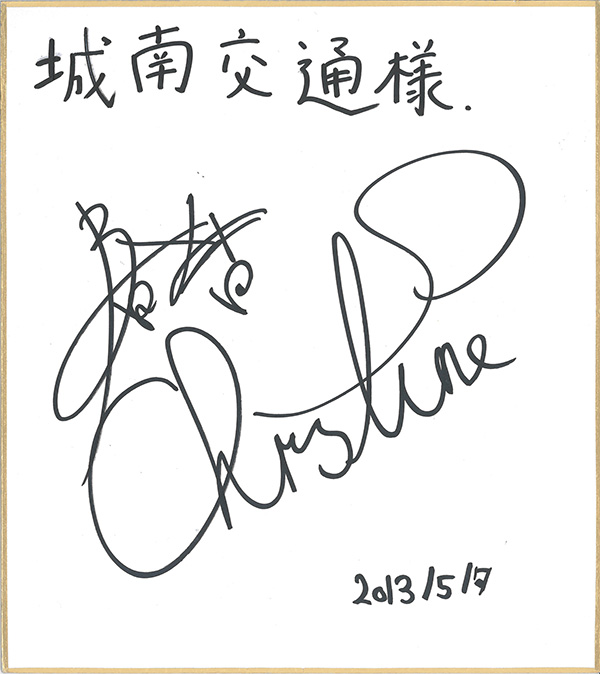 城南交通様.
Christine
2013/5/7